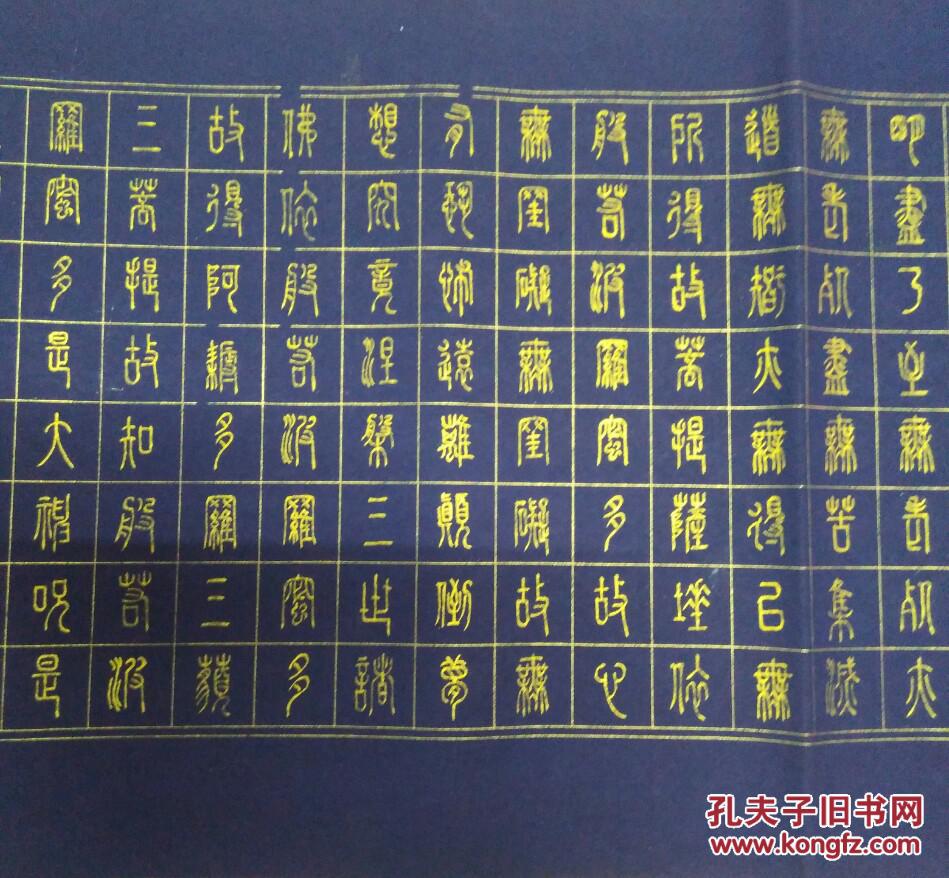 明盡乃至無老死亦
無老死盡無苦集滅
道無智亦無得以無
所得故菩提薩埵依
般若波羅蜜多故心
無罣礙無罣礙故無
有恐怖遠離顛倒夢
想究竟涅槃三世諸
佛依般若波羅蜜多
故得阿耨多羅三藐
三菩提故知般若波
羅蜜多是大神呪是
孔夫子旧书网
www.kongfz.com